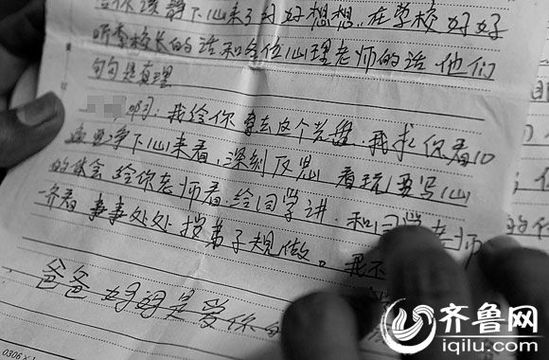 你该静下心来了好好想想，在学校好好
听李校长的话和各位心理老师的话.他们
句句是真理
啊：我给你 这个光盘.我求你看10
遍 静下心来看，深刻反思 看玩要写心
的体会 给你老师看.给同学讲.和同学老师
一齐看 事事处处 按弟子规做。我不
爸爸妈妈是爱你
0306
齐鲁网
iqilu.com